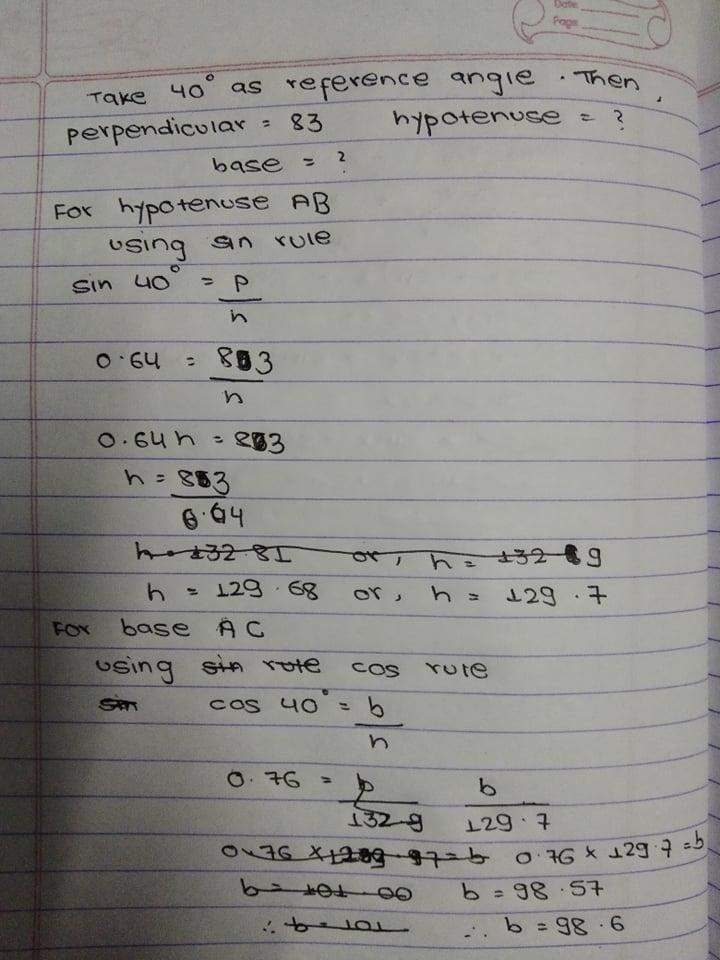 Date
Page
Take 40° as reference angle. Then,
perpendicular = 83 hypotenuse = ?
base = ?
For hypotenuse AB
using sin rule
sin 40° = p
h
0.64 = 83
h
0.64 h = 83
h = 83
0.64
h = 132.81 or, h = 132.9
h = 129.68 or, h = 129.7
For base AC
using sin rule cos rule
sin cos 40° = b
h
0.76 = b b
132.9 129.7
0.76 × = b 0.76 × 129.7 = b
b = 101.00 b = 98.57
∴ b = 101 ∴ b = 98.6